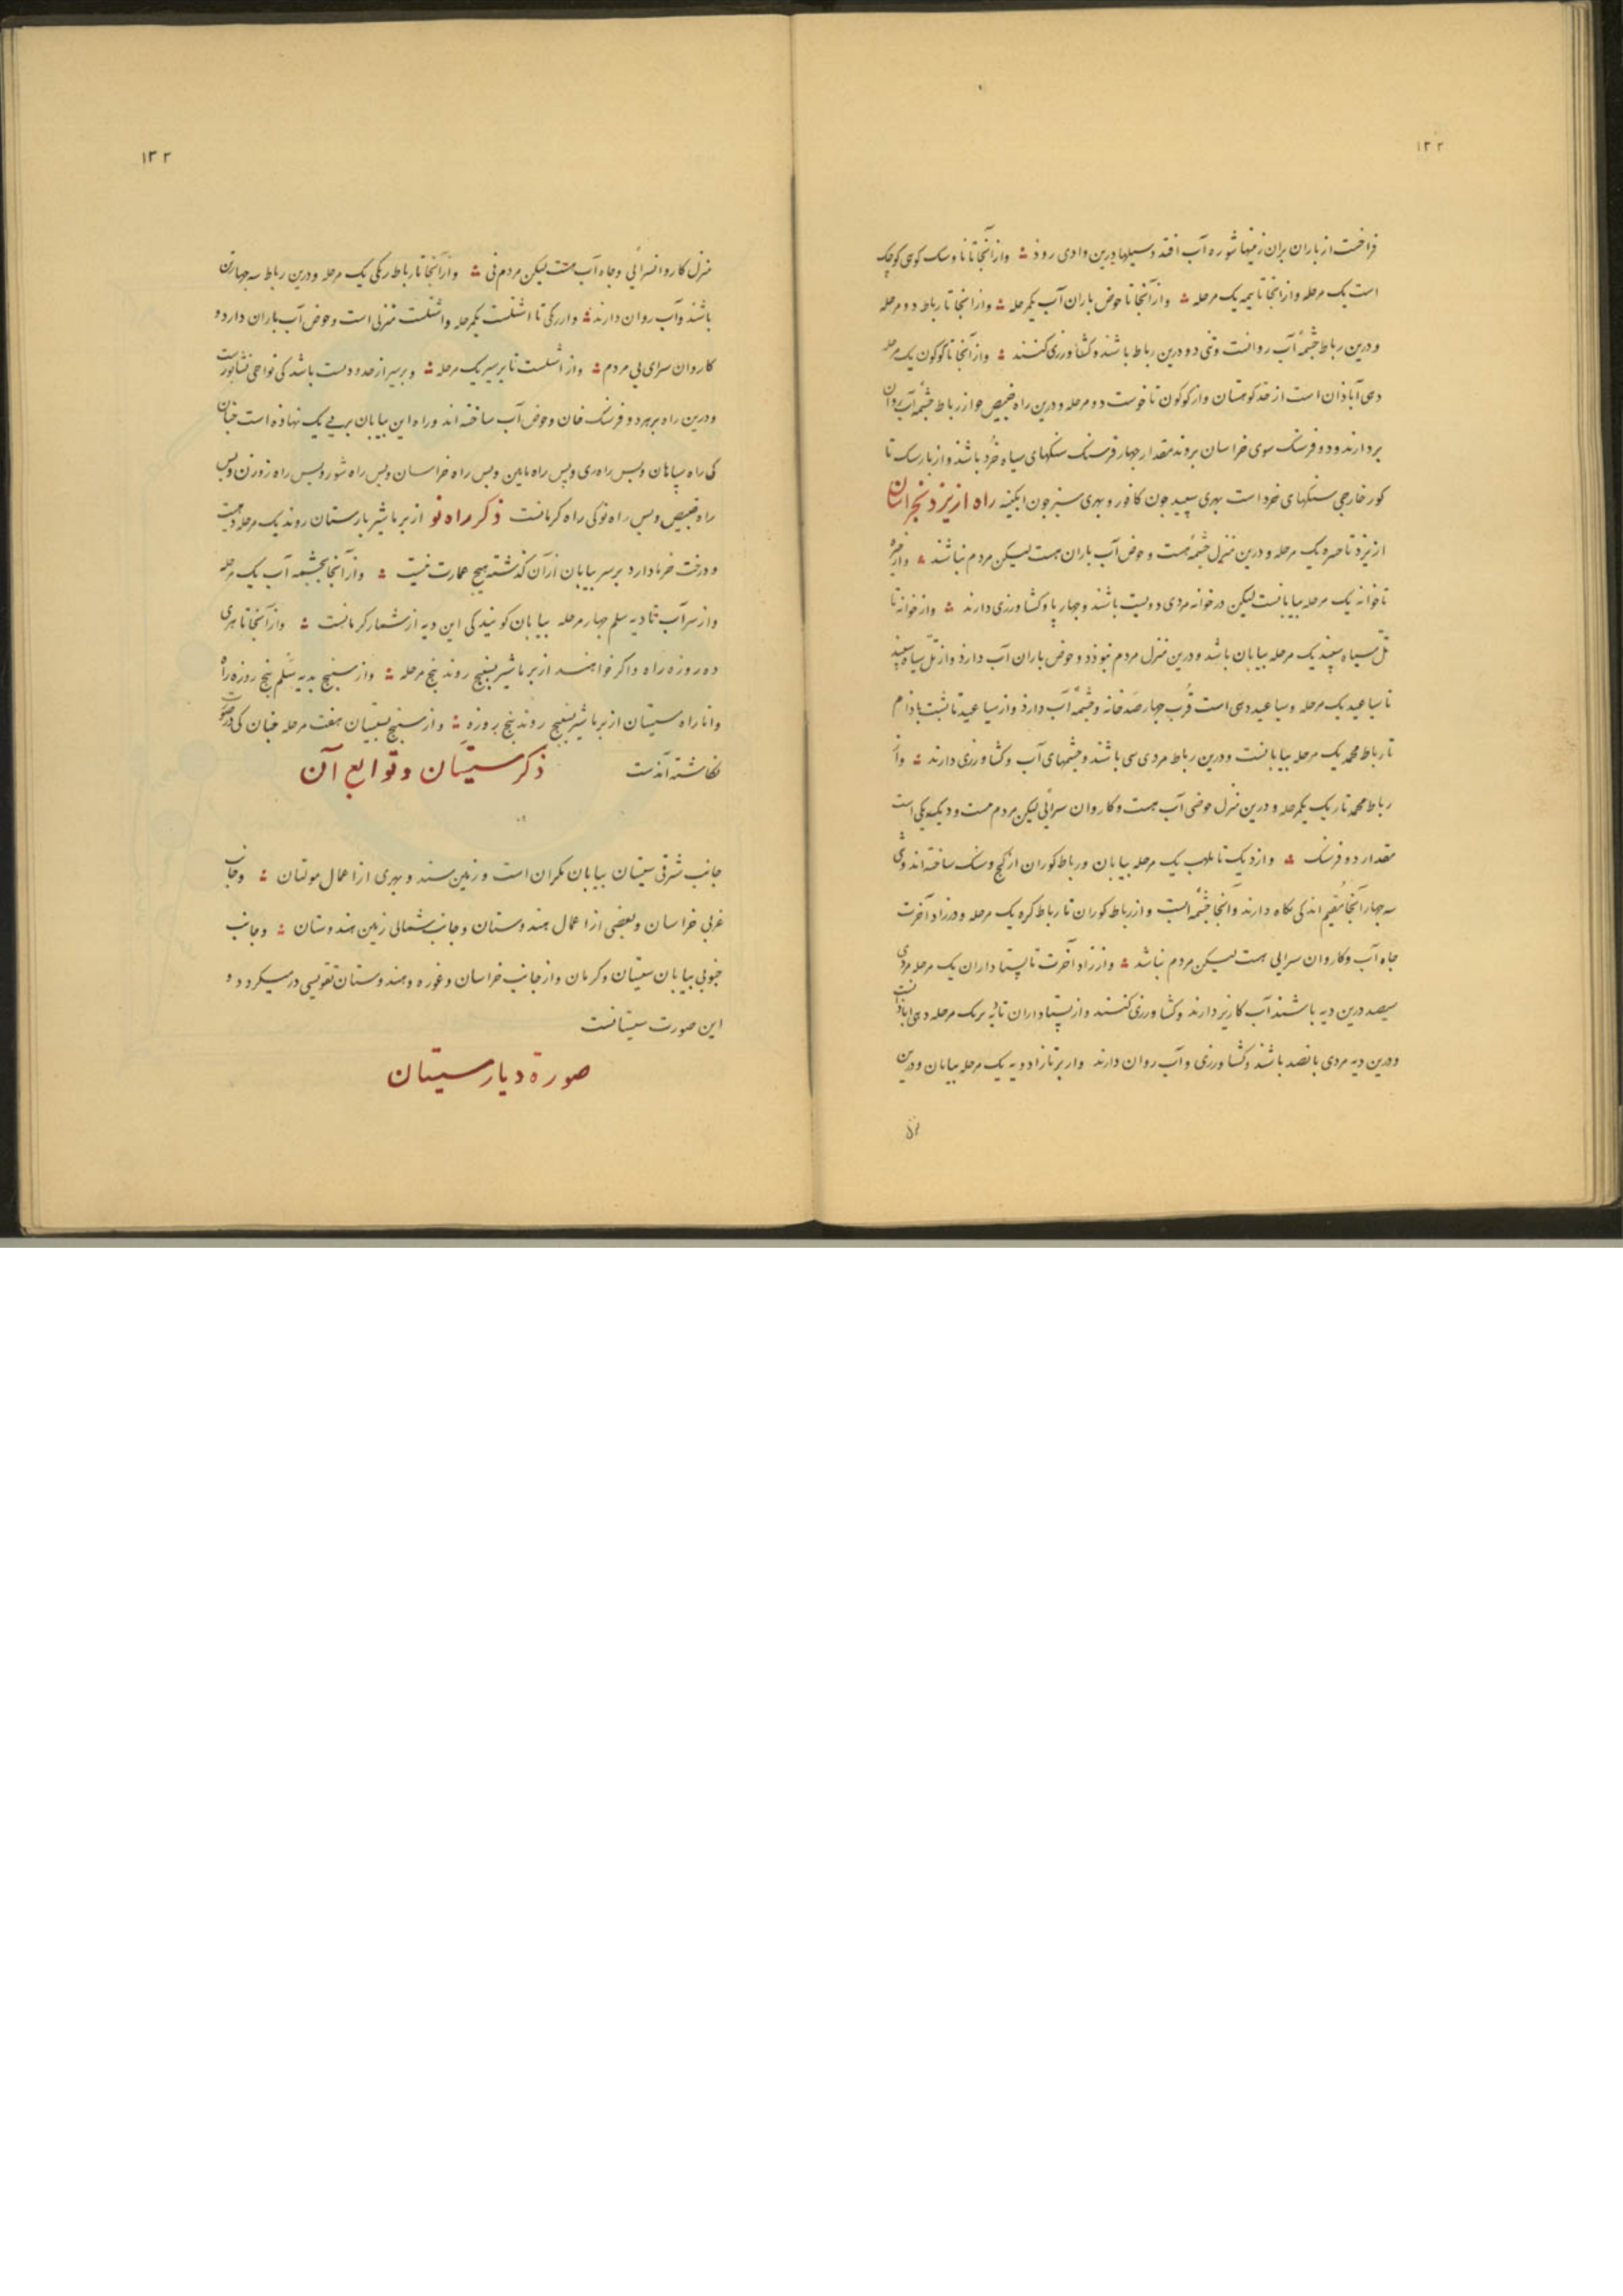 ۱۳۲
فراخست از باران بران زمینها شوره آب افتد و سیلها درین وادی رود ؞ و از آنجا تا ناوسک کوهی کوچک
است یک مرحله و از انجا تا بیمه یک مرحله ؞ و از آنجا تا حوض باران آب یکمرحله ؞ و از انجا تا رباط دو مرحله
و درین رباط چشمهٔ آب روانست و تنی دو درین رباط باشند و کشاورزی کنند ؞ و از آنجا تا کوکون یک مرحله
دهی آباذان است از حد کوهستان و از کوکون تا خوست دو مرحله و درین راه خبیص جو از رباط چشمه آب روان
بردارند و دو فرسنک سوی خراسان بروند مقدار چهار فرسنک سنکهای سیاه خُرد باشد و از بارسک تا
کور خارجی سنکهای خرد است بهری سپید جون کافور و بهری سبز جون ابکینه راه از یزد بخراسان
از یزد تا حیره یک مرحله و درین منزل چشمهٔ هست و حوض آب باران هست لیکن مردم نباشند ؞ و از حیره
تا خوانه یک مرحله بیابانست لیکن در خوانه مردی دویست باشند و چهار پا و کشاورزی دارند ؞ و از خوانه تا
تلّ سیاه سپید یک مرحله بیابان باشد و درین منزل مردم نبوذد و حوض باران آب دارذ و از تلّ سیاه سپید
تا سیاعید یک مرحله و سیاعید دهی است قُرب چهار صَد خانه و چشمهٔ آب دارذ و از سیاعید تا شت بادام
تا رباط محمد یک مرحله بیابانست و درین رباط مردی سی باشند و چشمهای آب و کشاورزی دارند ؞ و از
رباط محمد تا ریک یکمرحله و درین منزل حوضی آب هست و کاروان سرائی لیکن مردم نست و دیک ریکی است
مقدار دو فرسنک ؞ و از دیک تا مهلب یک مرحله بیابان و رباط کوران از کچ و سنک ساخته اند و تنی
سه چهار آنجا مُقیم اند کی نکاه دارند و آنجا چشمهٔ است و از رباط کوران تا رباط کره یک مرحله و در زاد آخرت
چاه آب و کاروان سرایی هست لیکن مردم نباشد ؞ و از زاد آخرت تا بستاداران یک مرحله مردی
سیصد درین دیه باشند آب کاریز دارند و کشاورزی کنند و از بستاداران تا دیه بر یک مرحله دهی اباذانست
و درین دیه مردی پانصد باشند و کشاورزی و آب روان دارند و از بر تا زادویه یک مرحله بیابان و درین
۱۳۳
منزل کاروانسرائی و چاه آب هست لیکن مردم نی ؞ و از آنجا تا رباط ریکی یک مرحله و درین رباط سه چهار تن
باشند و آب روان دارند ؞ و از ریکی تا اشتلست یکمرحله و اشتلست منزلی است و حوض آب باران دارد و
کاروان سرای بی مردم ؞ و از اشتلست تا برسیر یک مرحله ؞ و برسیر از حدود بست باشد کی نواحی نشابورست
و درین راه بر هر دو فرسنک خان و حوض آب ساخته اند و راه این بیابان بر پی یک نهاذه است چنان
کی راه سپاهان و پس راه ری و پس راه نایین و پس راه خراسان و پس راه شور و پس راه زوزن و پس
راه خبیص و پس راه نو کی راه کرمانست ذکر راه نو از برماشیر بارستان روند یک مرحله دیهیست
و درخت خرما دارد بر سر بیابان از آن کذشته هیچ عمارت نیست ؞ و از آنجا بچشمه آب یک مرحله
و از سر آب تا دیه سلم چهار مرحله بیابان کویند کی این دیه از شمار کرمانست ؞ و از آنجا تا هری
ده روزه راه و اکر خواهند از برماشیر بسنیج روند پنج مرحله ؞ و از سنیج بدیه سَلْم پنج روزه راه
و اما راه سیستان از برماشیر بسنیج روند پنج روزه ؞ و از سنیج بسیستان هفت مرحله چنان کی در صورت
نکاشته آمذست
ذکر سیستان و توابع آن
جانب شرقی سیستان بیابان مکران است و زمین سند و بهری از اعمال مولتان ؞ و جانب
غربی خراسان و بعضی از اعمال هندوستان و جانب شمالی زمین هندوستان ؞ و جانب
جنوبی بیابان سیستان و کرمان و از جانب خراسان و غوره و هندوستان تقویسی در میکردد و
این صورت سیستانست
صورة دیار سیستان